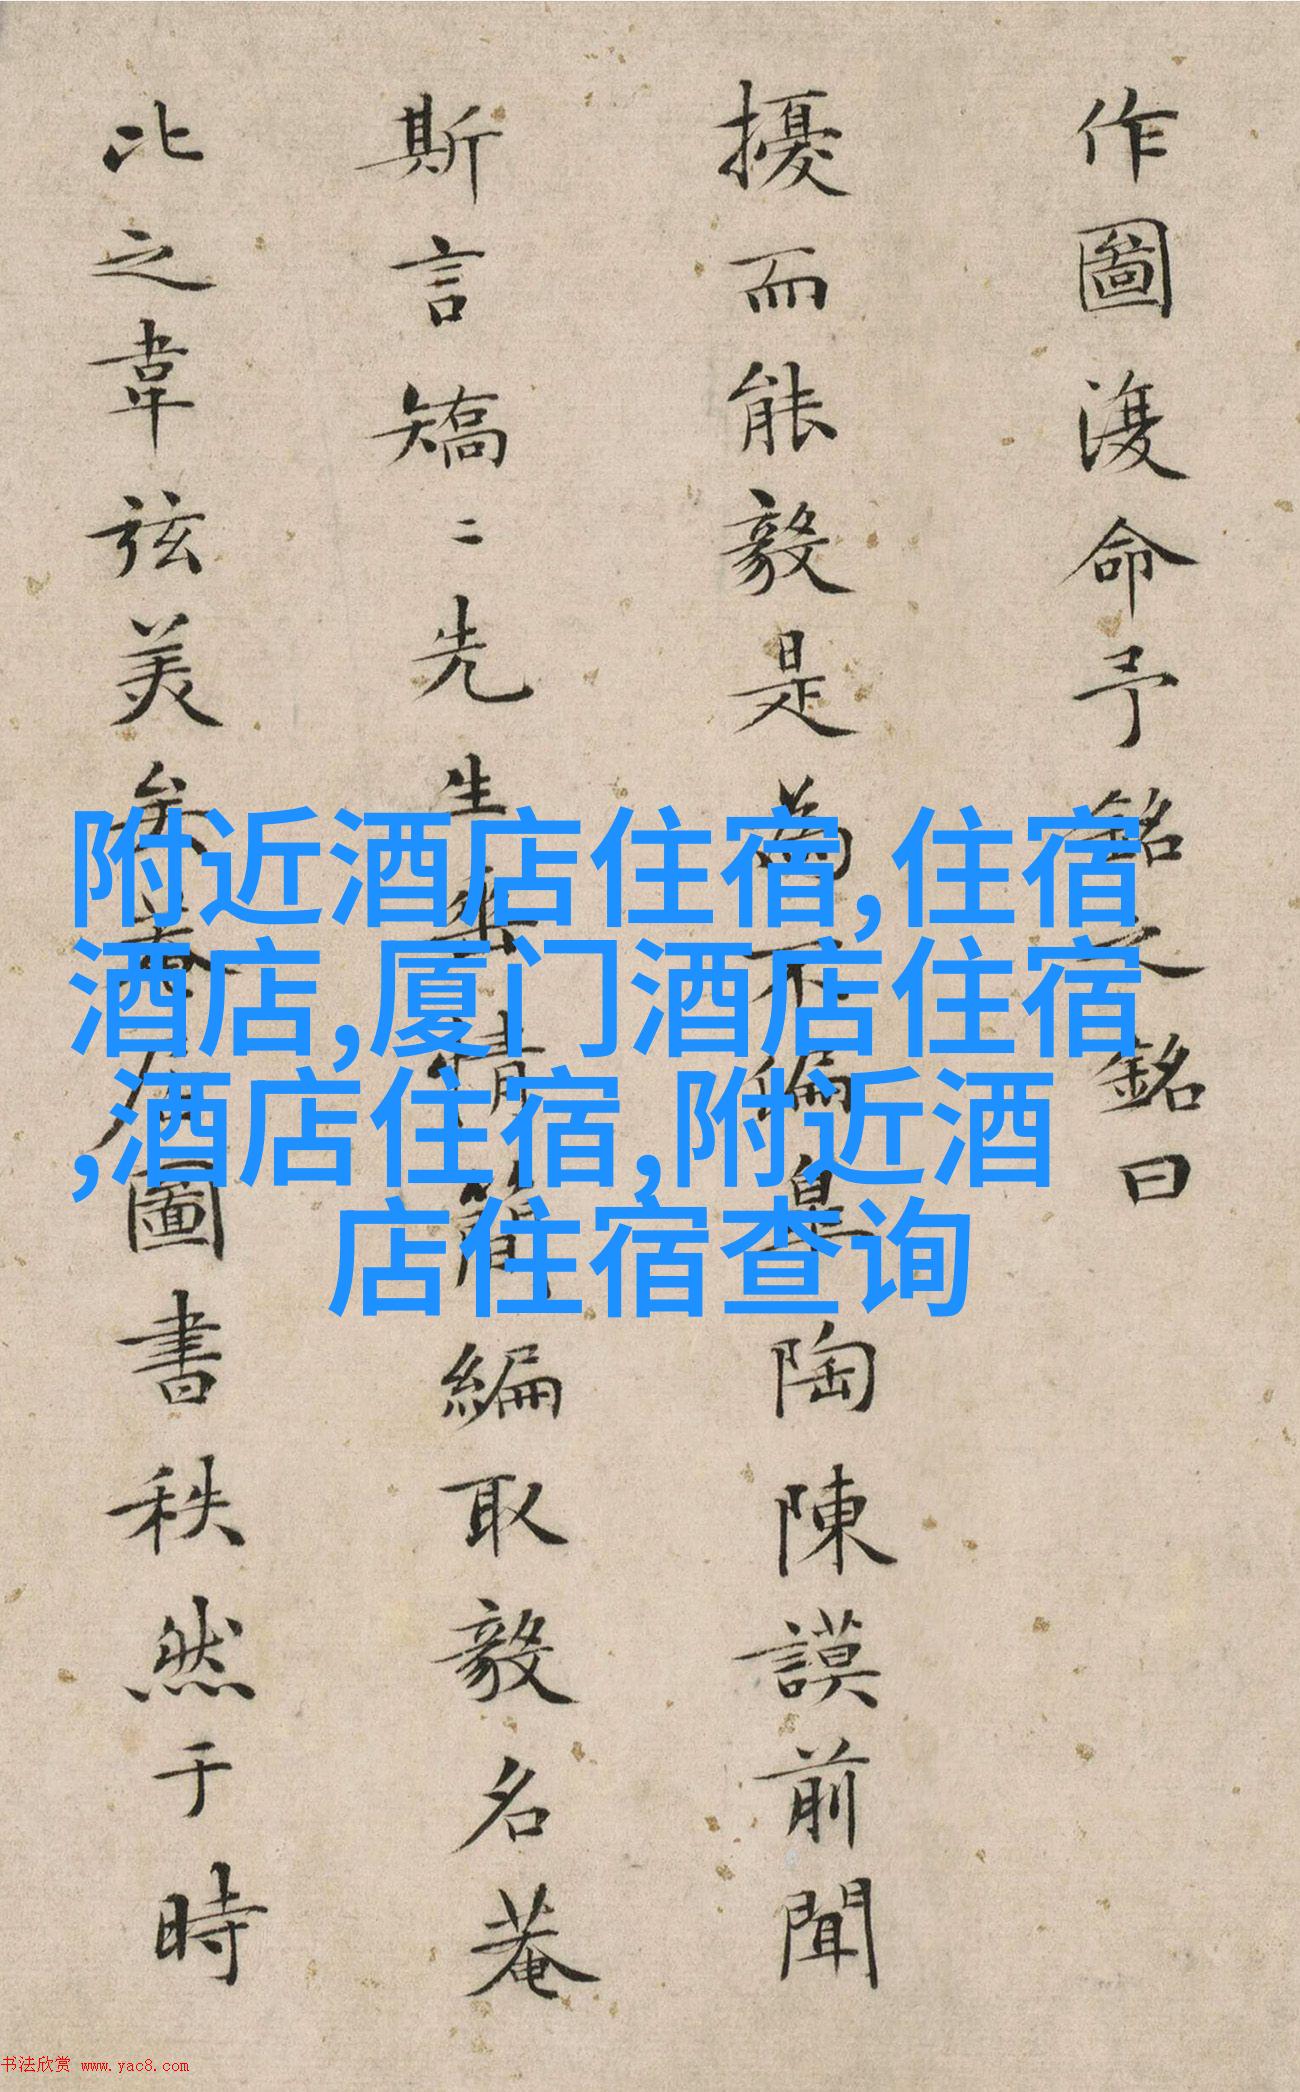 作圖復命予銘之銘曰
擾而能毅是為不偏皐陶陳謨前聞
斯言矯二先生無情簡編取毅名菴
比之韋弦美矣春居圖書秩然于時
附近酒店住宿,住宿
酒店,厦门酒店住宿
,酒店住宿,附近酒
店住宿查询
书法欣赏 www.yac8.com